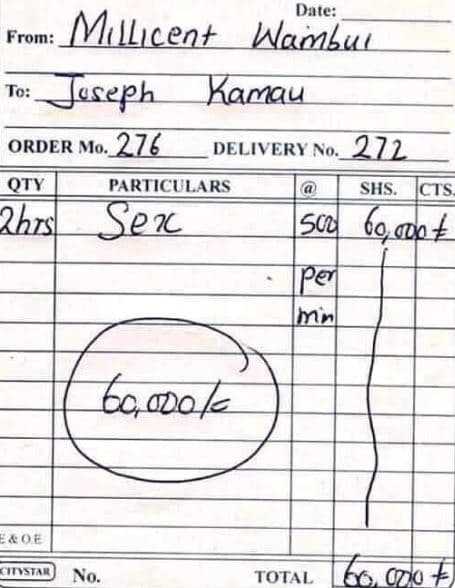 Date:
From: Millicent Wambui
To: Joseph Kamau
ORDER Mo. 276 DELIVERY No. 272
QTY PARTICULARS @ SHS. CTS.
2hrs Sex 500 60,000/=
per
min
60,000/=
E & O.E
CITYSTAR No. TOTAL 60,000/=